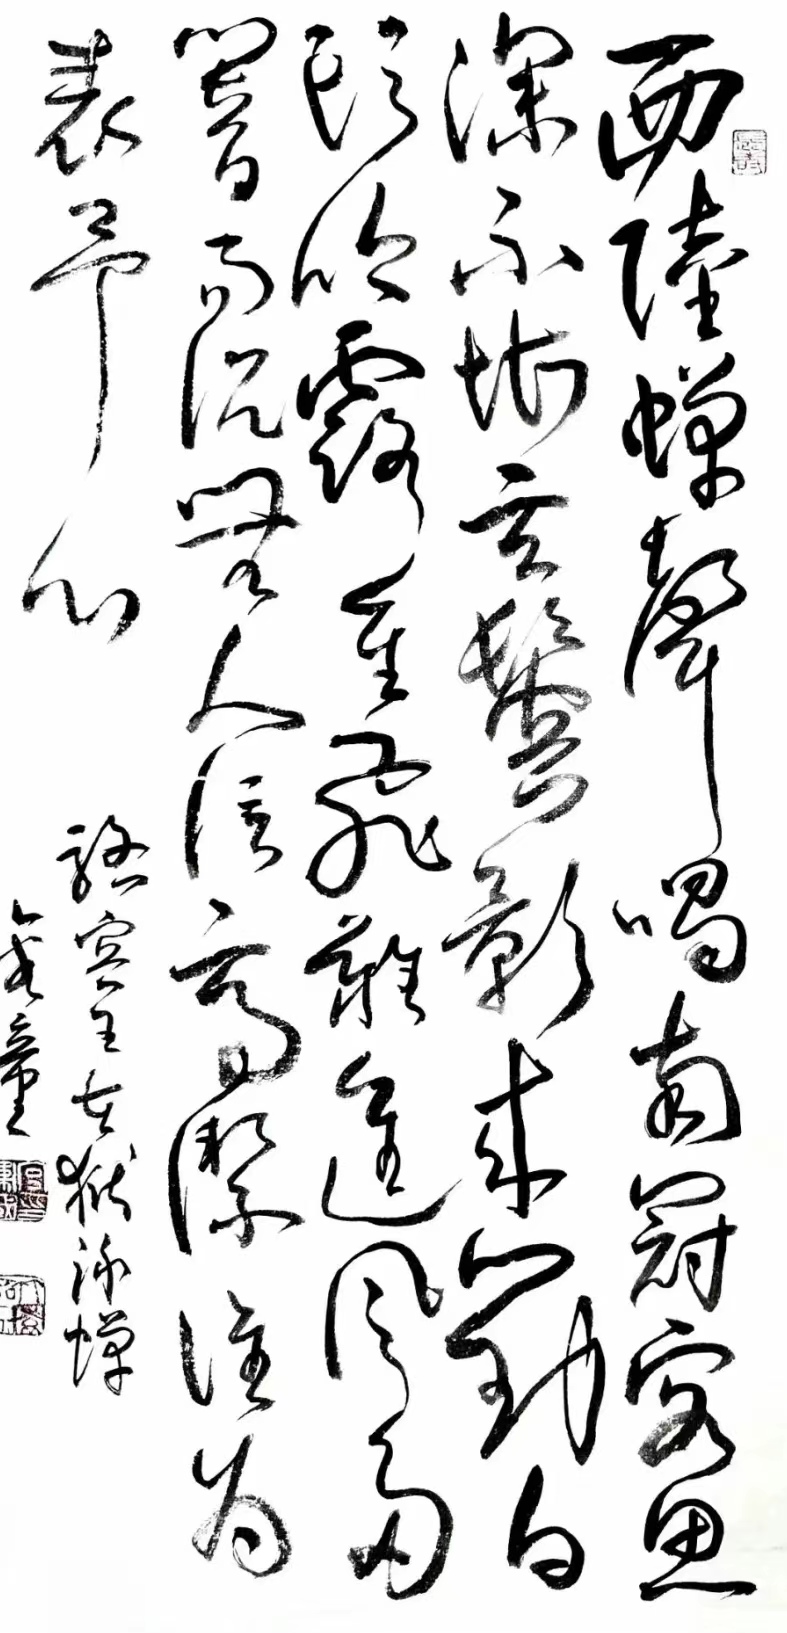 西陸蟬聲唱南冠客思
深不堪玄鬢影來對白
頭吟露重飛難進風多
響易沉無人信高潔誰為
表予心
駱賓王在獄詠蟬
童